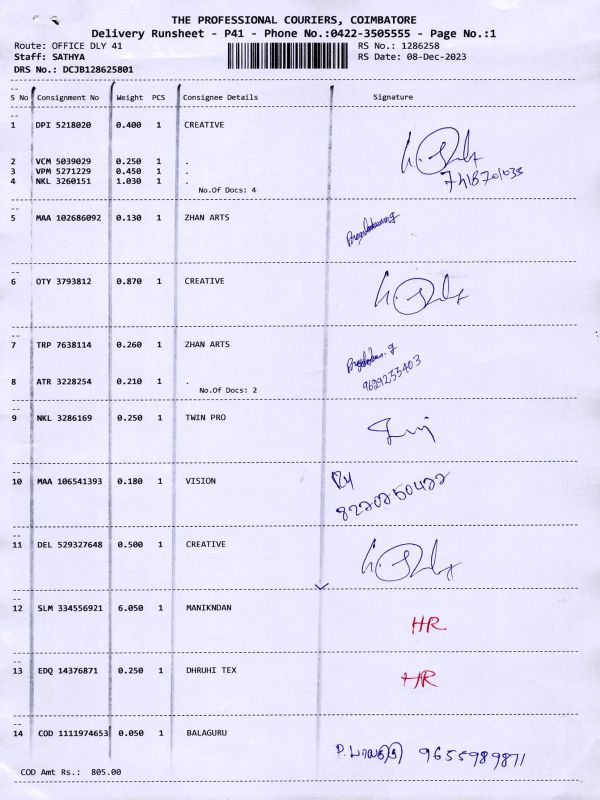 THE PROFESSIONAL COURIERS, COIMBATORE
Delivery Runsheet - P41 - Phone No.:0422-3505555 - Page No.:1
Route: OFFICE DLY 41 RS No.: 1286258
Staff: SATHYA RS Date: 08-Dec-2023
DRS No.: DCJB128625801
S No Consignment No Weight PCS Consignee Details Signature
1 DPI 5218020 0.400 1 CREATIVE
2 VCM 5039029 0.250 1 .
3 VPM 5271229 0.450 1 .
4 NKL 3260151 1.030 1 .
No.Of Docs: 4
5 MAA 102686092 0.130 1 ZHAN ARTS
6 OTY 3793812 0.870 1 CREATIVE
7 TRP 7638114 0.260 1 ZHAN ARTS
9629233403
8 ATR 3228254 0.210 1 .
No.Of Docs: 2
9 NKL 3286169 0.250 1 TWIN PRO
10 MAA 106541393 0.180 1 VISION
11 DEL 529327648 0.500 1 CREATIVE
12 SLM 334556921 6.050 1 MANIKNDAN HR
13 EDQ 14376871 0.250 1 DHRUHI TEX HR
14 COD 1111974653 0.050 1 BALAGURU
9655989871
COD Amt Rs.: 805.00